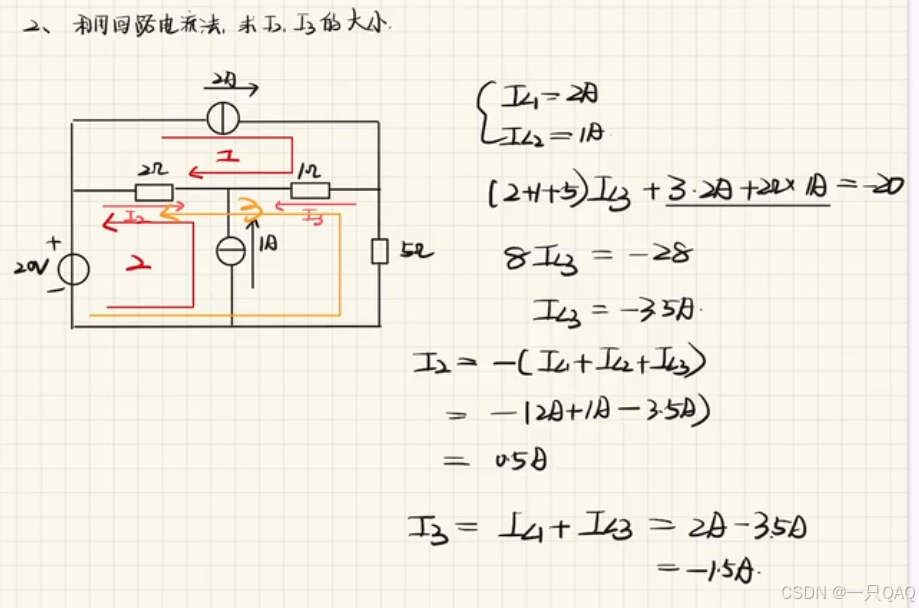 2、利用回路电流法,求I2,I3的大小.
2A
1
2Ω
1Ω
I2
3
I3
+
20V
-
2
1A
5Ω
{ IL1=2A
IL2=1A
(2+1+5)IL3+3·2A+2Ω×1A=-20
8IL3=-28
IL3=-3.5A.
I2=-(IL1+IL2+IL3)
=-(2A+1A-3.5A)
=0.5A
I3=IL1+IL3=2A-3.5A
=-1.5A.
CSDN @一只QAQ